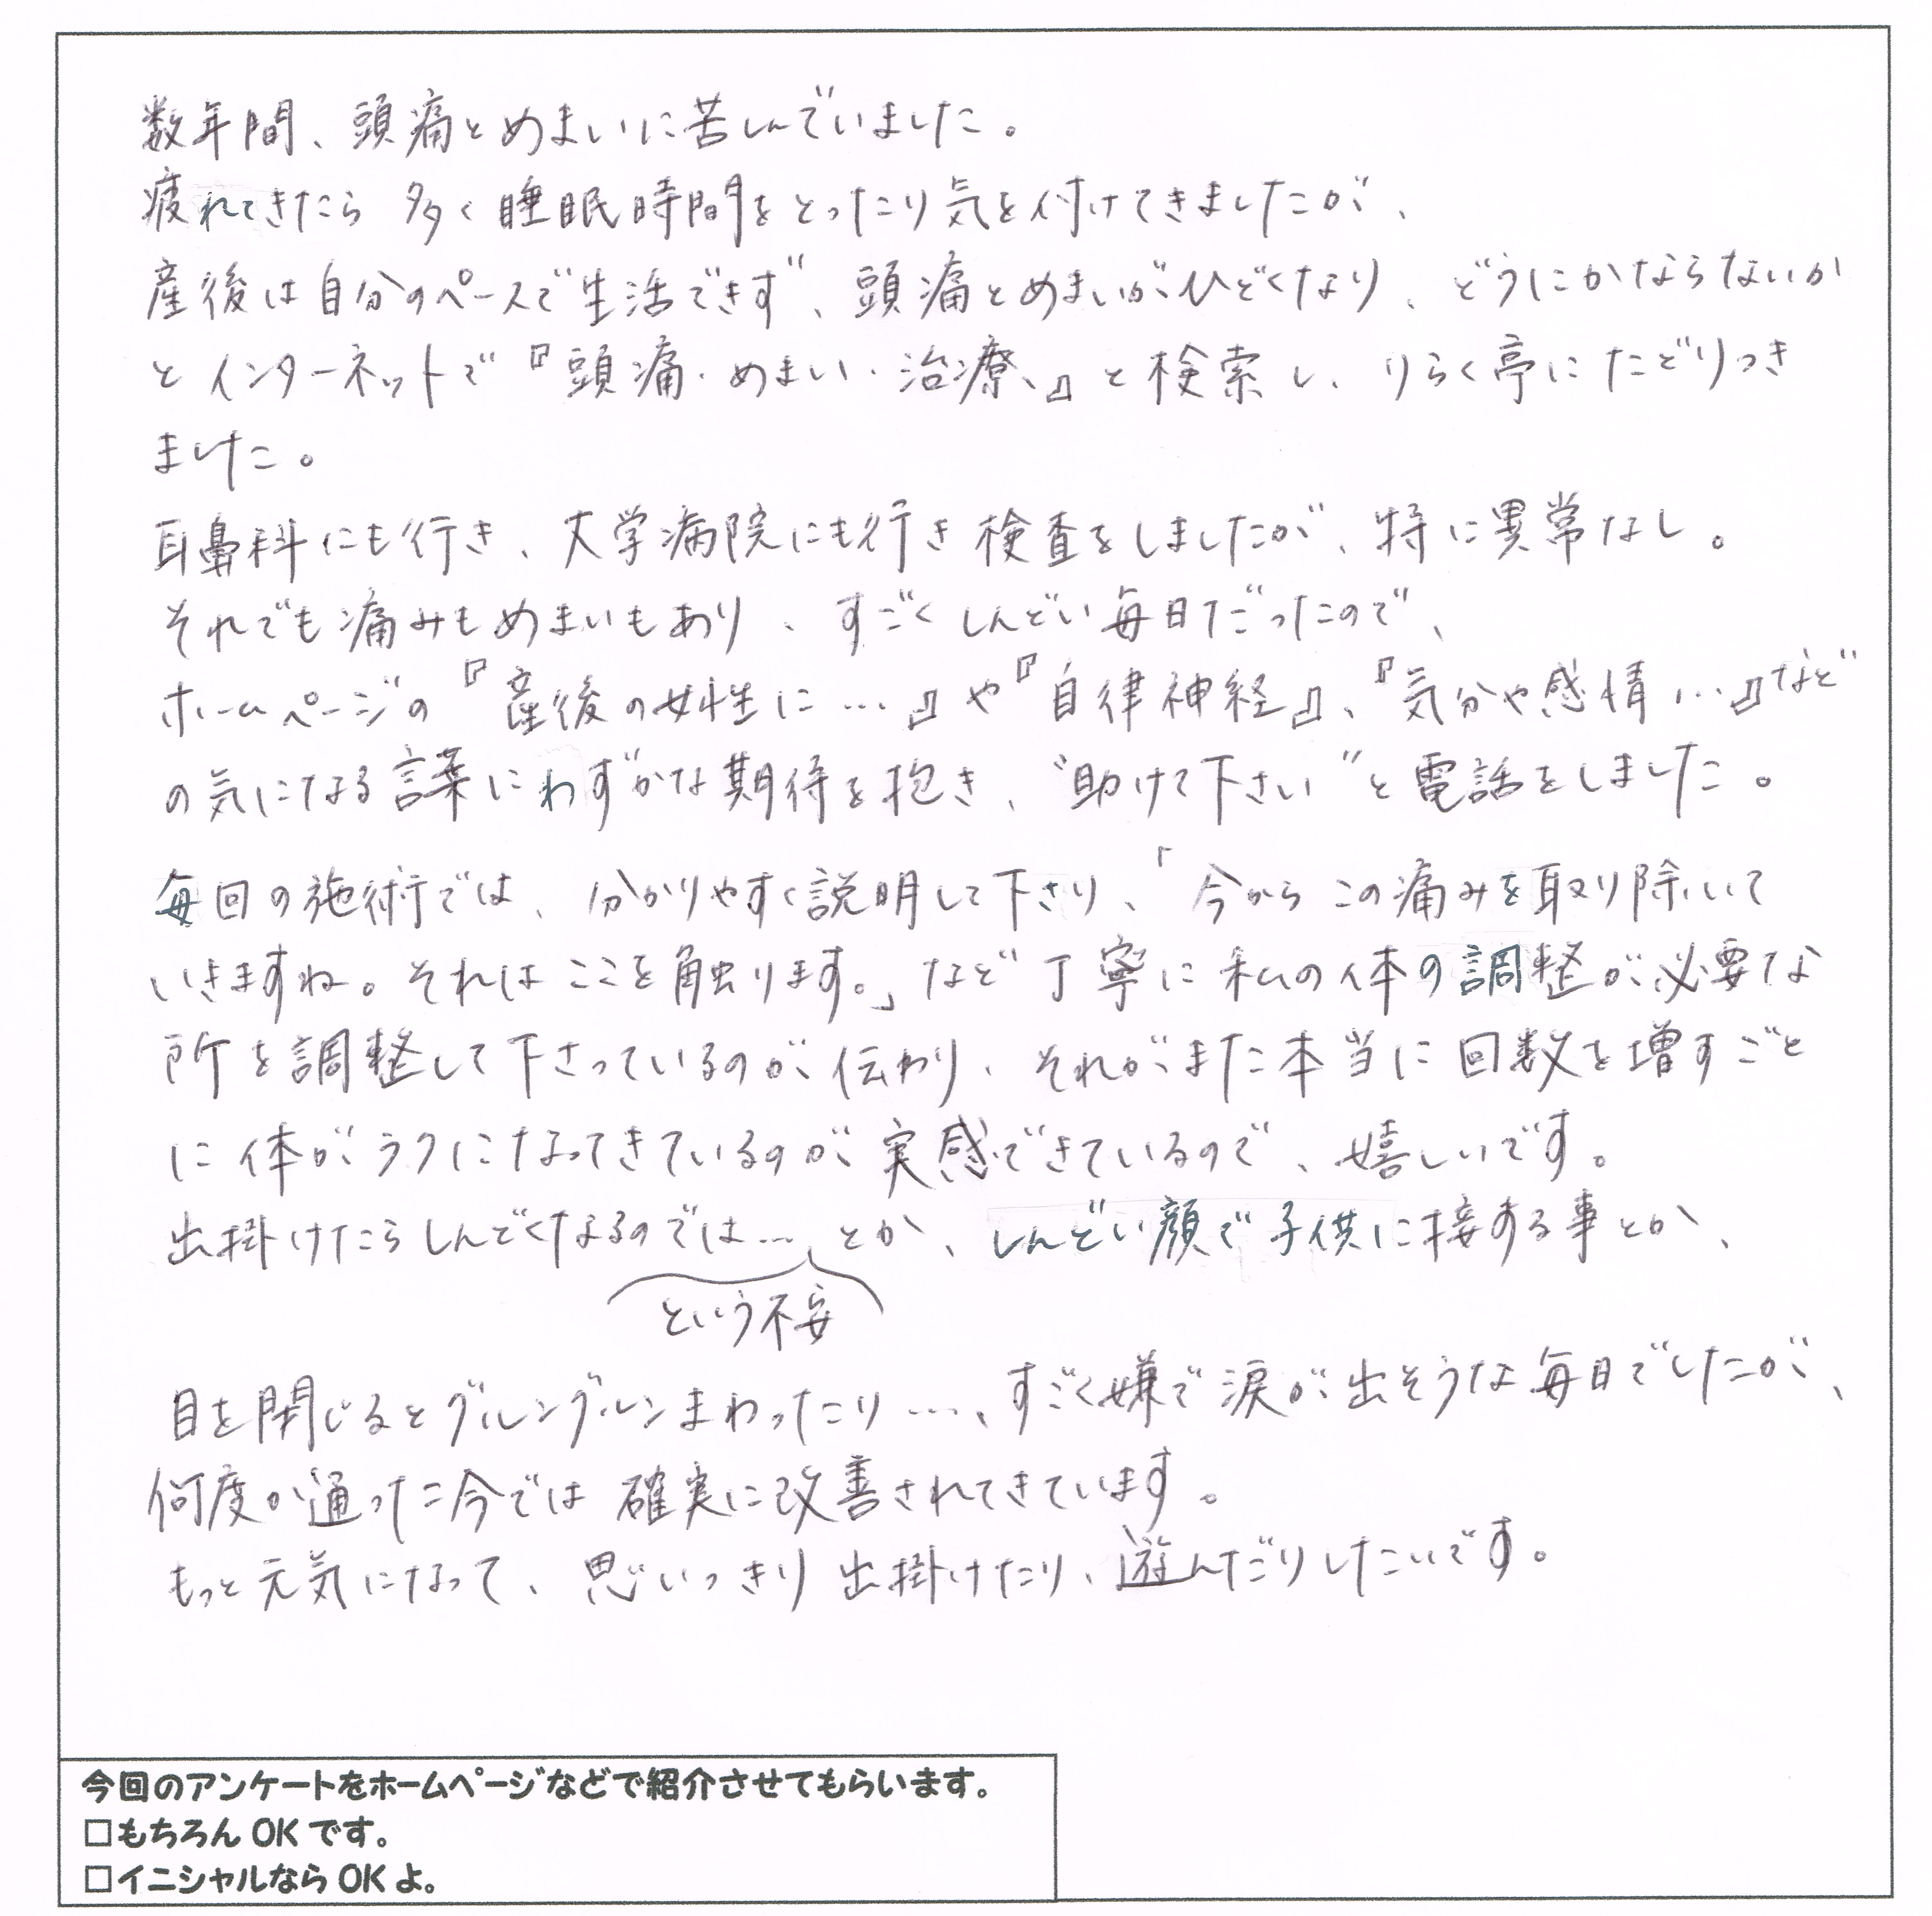 数年間、頭痛とめまいに苦しんでいました。
疲れてきたら 多く睡眠時間をとったり気を付けてきましたが、
産後は自分のペースで生活できず、頭痛とめまいがひどくなり、どうにかならないか
とインターネットで『頭痛・めまい・治療、』と検索し、りらく亭にたどりつき
ました。
耳鼻科にも行き、大学病院にも行き検査をしましたが、特に異常なし。
それでも痛みもめまいもあり、すごくしんどい毎日だったので、
ホームページの『産後の女性に…』や『自律神経』、『気分や感情…』など
の気になる言葉にわずかな期待を抱き、“助けて下さい”と電話をしました。
毎回の施術では、分かりやすく説明して下さり、「今からこの痛みを取り除いて
いきますね。それはここを触ります。」など丁寧に私の体の調整が必要な
所を調整して下さっているのが伝わり、それがまた本当に回数を増すごと
に体がラクになってきているのが実感できているので、嬉しいです。
出掛けたらしんどくなるのでは…とか、しんどい顔で子供に接する事とか、
という不安
目を閉じるとグルングルンまわったり…、すごく嫌で涙が出そうな毎日でしたが、
何度か通った今では確実に改善されてきています。
もっと元気になって、思いっきり出掛けたり、遊んだりしたいです。
今回のアンケートをホームページなどで紹介させてもらいます。
□もちろんOKです。
□イニシャルならOKよ。